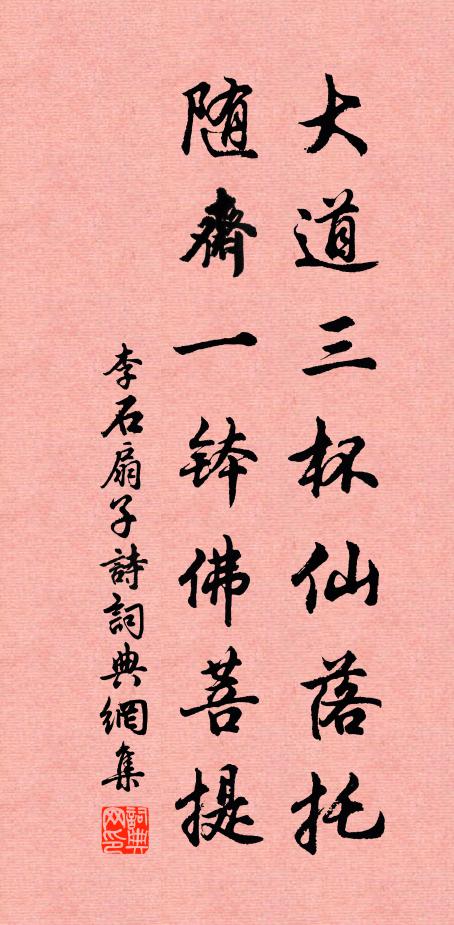 大道三杯仙落托
随齋一鉢佛菩提
李石扇子詩詞典網集
詞典网印